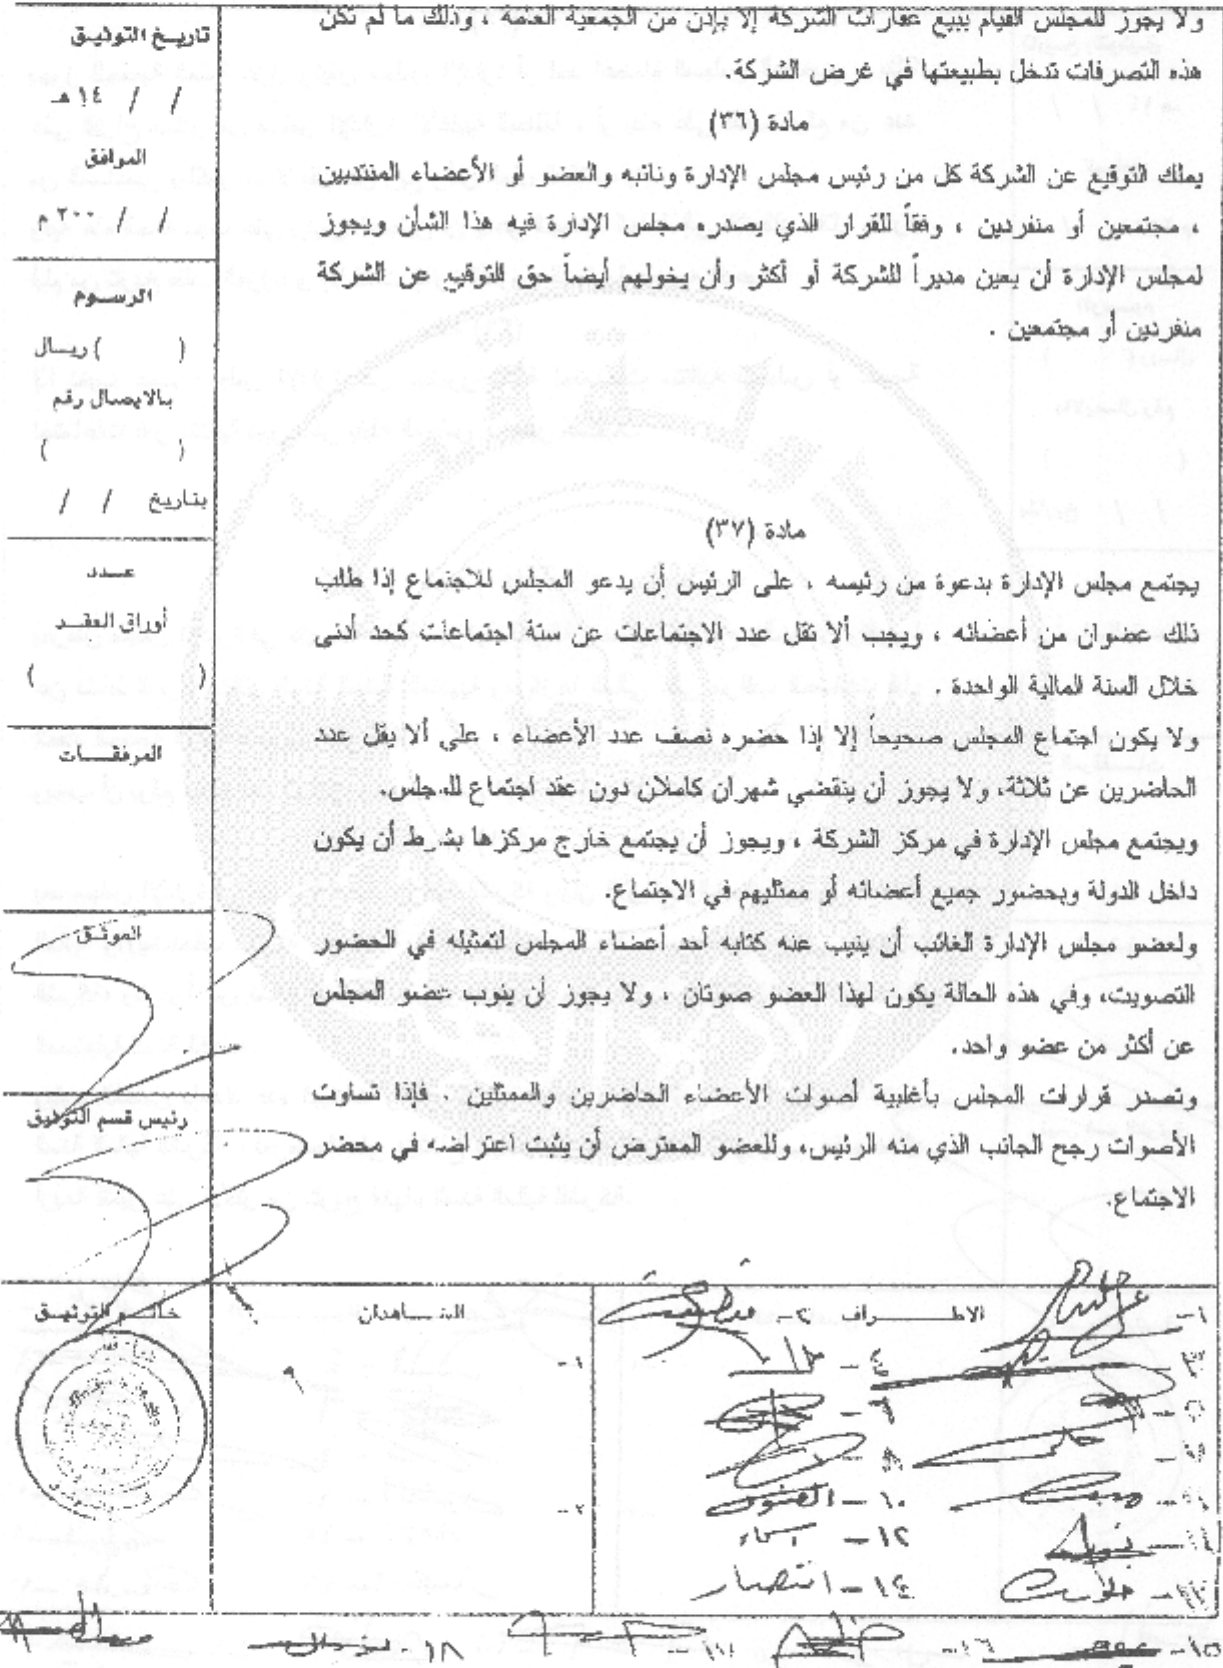 ولا يجوز للمجلس القيام ببيع عقارات الشركة إلا بإذن من الجمعية العامة ، وذلك ما لم تكن
هذه التصرفات تدخل بطبيعتها في غرض الشركة.
مادة (٣٦)
يملك التوقيع عن الشركة كل من رئيس مجلس الإدارة ونائبه والعضو أو الأعضاء المنتدبين
، مجتمعين أو منفردين ، وفقاً للقرار الذي يصدره مجلس الإدارة فيه هذا الشأن ويجوز
لمجلس الإدارة أن يعين مديراً للشركة أو أكثر وأن يخولهم أيضاً حق التوقيع عن الشركة
منفردين أو مجتمعين .
مادة (٣٧)
يجتمع مجلس الإدارة بدعوة من رئيسه ، على الرئيس أن يدعو المجلس للاجتماع إذا طلب
ذلك عضوان من أعضائه ، ويجب ألا تقل عدد الاجتماعات عن ستة اجتماعات كحد أدنى
خلال السنة المالية الواحدة .
ولا يكون اجتماع المجلس صحيحاً إلا إذا حضره نصف عدد الأعضاء ، على ألا يقل عدد
الحاضرين عن ثلاثة، ولا يجوز أن ينقضي شهران كاملان دون عقد اجتماع للمجلس.
ويجتمع مجلس الإدارة في مركز الشركة ، ويجوز أن يجتمع خارج مركزها بشرط أن يكون
داخل الدولة وبحضور جميع أعضائه أو ممثليهم في الاجتماع.
ولعضو مجلس الإدارة الغائب أن ينيب عنه كتابه أحد أعضاء المجلس لتمثيله في الحضور
التصويت، وفي هذه الحالة يكون لهذا العضو صوتان ، ولا يجوز أن ينوب عضو المجلس
عن أكثر من عضو واحد.
وتصدر قرارات المجلس بأغلبية أصوات الأعضاء الحاضرين والممثلين . فإذا تساوت
الأصوات رجح الجانب الذي منه الرئيس، وللعضو المعترض أن يثبت اعتراضه في محضر
الاجتماع.
تاريخ التوثيق
/ / ١٤ هـ
الموافق
/ / ٢٠٠ م
الرسوم
( ) ريال
بالايصال رقم
( )
بتاريخ / /
عدد
أوراق العقد
( )
المرفقات
الموثق
رئيس قسم التوثيق
خاتم التوثيق
الشاهدان
١-
٢-
الاطراف
١-
٢-
٤-
٦-
١٠-
١٢- اسماء
١٤- انتصار
١٥-
١٦-
١٨-